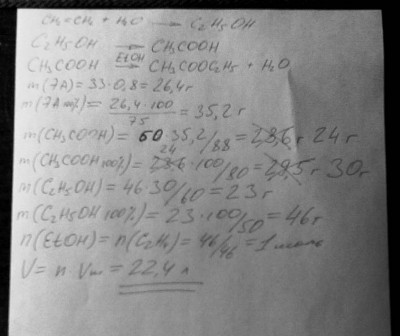 CH₂=CH₂ + H₂O → C₂H₅OH
C₂H₅OH → CH₃COOH
CH₃COOH EtOH → CH₃COOC₂H₅ + H₂O
m(ЭА) = 33·0,8 = 26,4г
m(ЭА 100%) = 26,4·100/75 = 35,2г
m(CH₃COOH) = 60·35,2/88 = 28,6г 24г
m(CH₃COOH 100%) = 28,6 24·100/80 = 28,5г 30г
m(C₂H₅OH) = 46·30/60 = 23г
m(C₂H₅OH 100%) = 23·100/50 = 46г
n(EtOH) = n(C₂H₄) = 46/46 = 1 моль
V = n·Vm = 22,4 л